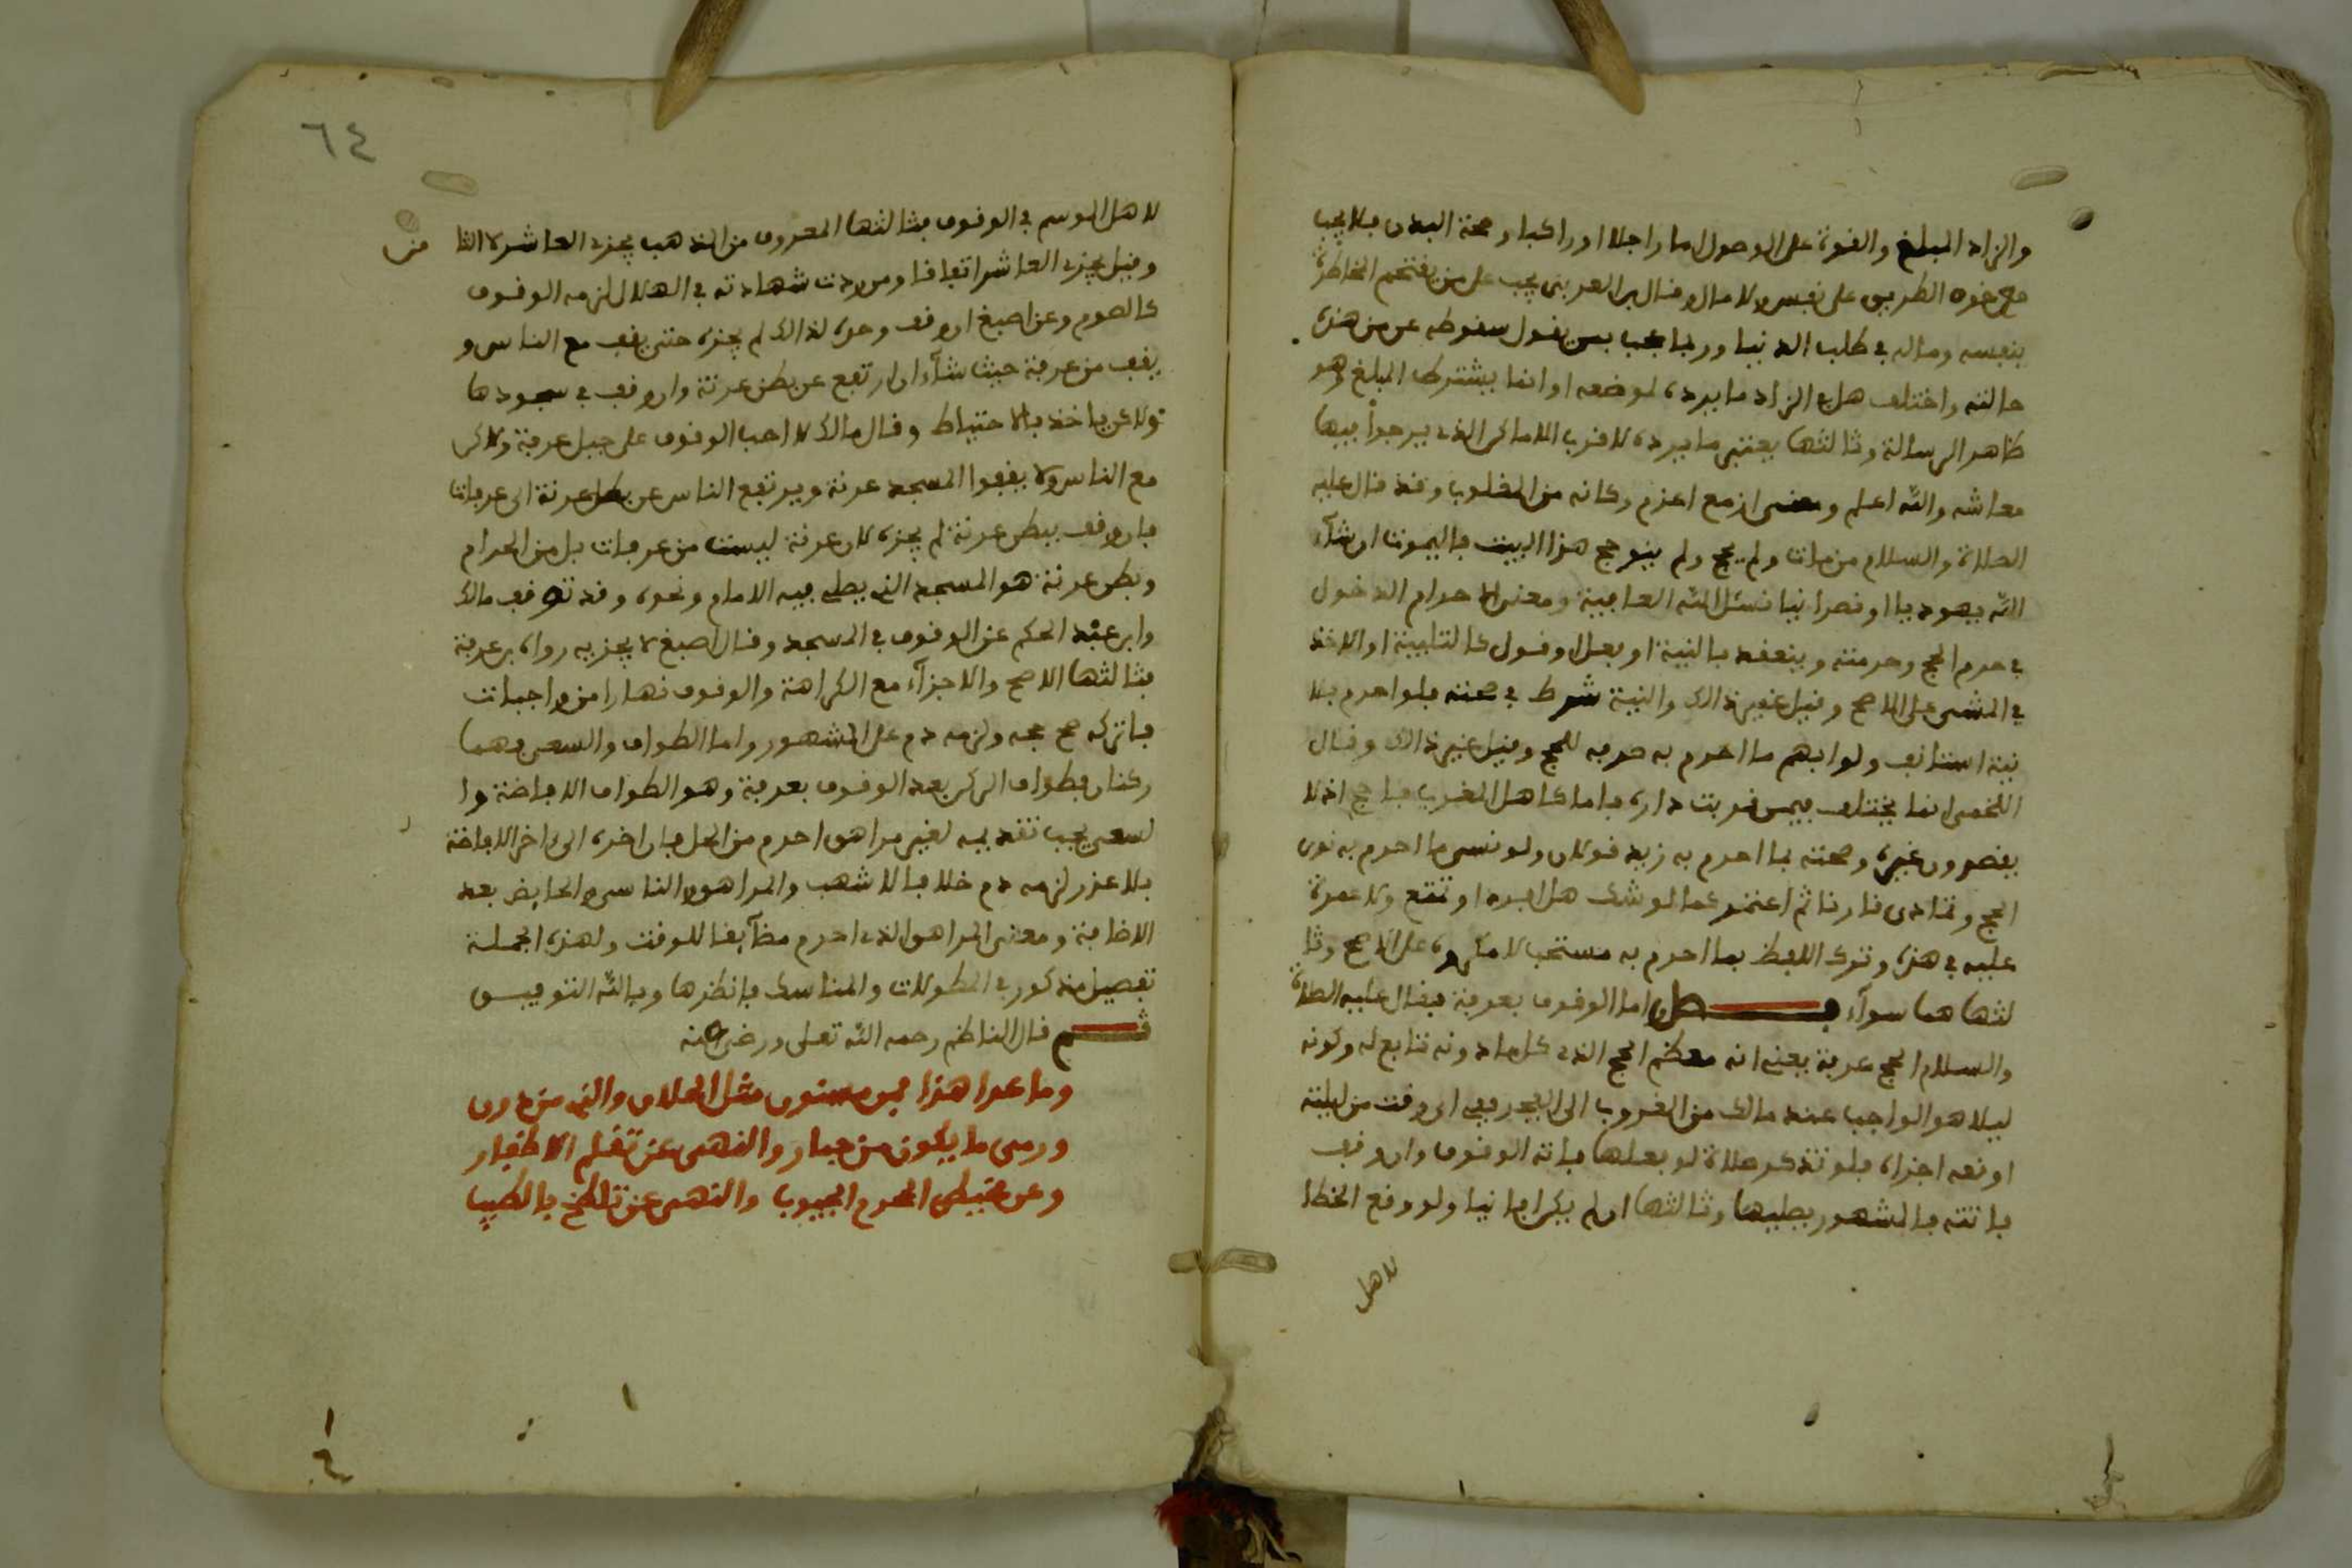 والزاد المبلغ والقوة على الوصول اما راجلا او راكبا وصحة البدن فلا يجب
مع خوف الطريق على نفس ولا مال وقال ابن العربي يجب على من يقتحم المخاطرة
بنفسه وماله في طلب الدنيا وربا عجب بمن يقول سقوطه عن من هذه
حالته واختلف هل الزاد ما يرده لموضعه او انما يشترط المبلغ وهو
ظاهر الرسالة وثالثها يعتبر ما يرده لاقرب الاماكن الذي يرجوا فيها
معاشه والله اعلم ومعنى ازمع اعزم وكانه من المقلوب وقد قال عليه
الصلاة والسلام من مات ولم يحج ولم ينو حج هذا البيت فاليموت ان شآء
الله يهوديا او نصرانيا نسئل الله العافية ومعنى الاحرام الدخول
في حرم الحج وحرمته وينعقد بالنية او بعل وقول كالتلبية او الاخذ
في المشي على الاصح وقيل غير ذالك والنية شرط في صحته فلو احرم بلا
نية استانف ولو ابهم ما احرم به صرفه للحج وقيل غير ذالك وقال
اللخمي انما يختلف فيمن قربت داره فاما كاهل المغرب فبا حج اذ لا
يقصدون غيره وصحته بما احرم به زيد قولان ولو نسي ما احرم به نوى
الحج وتمادى قارنا ثم اعتمر كما لو شك هل افرد او تمتع ولا عمرة
عليه في هذه وترك اللفظ بما احرم به مستحب لا مكروه على الاصح وثا
لثها هما سوآء فــصل واما الوقوف بعرفة فقال عليه الصلاة
والسلام الحج عرفة يعني انه معظم الحج الذي كل ما دونه تتابع له وكونه
ليلا هو الواجب عند مالك من الغروب الى الفجر ففي اي وقت من ليلته
اوقعه اجزاه فلو تذكر صلاة لو فعلها فاته الوقوف وان وقف
فاتته فالمشهور يصليها وثالثها ان لم يكن افاقيا ولو وقع الخطا
لاهل
٦٤
لاهل الموسم في الوقوف فثالثها المعروف من المذهب يجزي العاشر لا الثا
من
وقيل يجزي العاشر اتفاقا ومن ردت شهادته في الهلال لزمه الوقوف
كالصوم وعن اصبغ ان وقف وحده لذالك لم يجزه حتى يقف مع الناس و
يقف من عرفة حيث شآء ان ارتفع عن بطن عرنة وان وقف في مسجدها
فلا عن ياخذ بالاحتياط وقال مالك لا احب الوقوف على جبل عرفة ولاكن
مع الناس ولا يقفوا المسجد عرنة ويرتفع الناس عن بطن عرنة الى عرفات
فان وقف ببطن عرنة لم يجزه لان عرنة ليست من عرفات بل من الحرام
وبطن عرنة هو المسجد الذي يصلي فيه الامام ونحوه وقد توقف مالك
وابن عبد الحكم عن الوقوف في المسجد وقال اصبغ لا يجزيه رواه بن عرفة
فثالثها الاصح والاجزآء مع الكراهة والوقوف نهارا من واجبات
فان تركه صح حجه ولزمه دم على المشهور واما الطواف والسعي فهما
ركنان فطواف الركن بعد الوقوف بعرفة وهو الطواف الافاضة وا
لسعي يجب تقديمه لغير مراهق احرم من الحل فان اخره الى اخر الافاضة
بلا عذر لزمه دم خلافا لاشهب والمراهق والناسي والحايض بعد
الافاضة ومعنى المراهق الذي احرم مضآيقا للوقت ولهذه الجملة
تفصيل مذكور في المطولات والمناسك فانظرها وبالله التوفيــق
ثــم قال الناظم رحمه الله تعلى ورضي عنه
وما عدا هذا فمن مسنون مثل الحلاق والذي من دون
ورمي ما يكون من جمار والنهي عن تقلم الاظفار
وعن مخيطي المحرم المجيوب والنهي عن تلطخ بالطيب